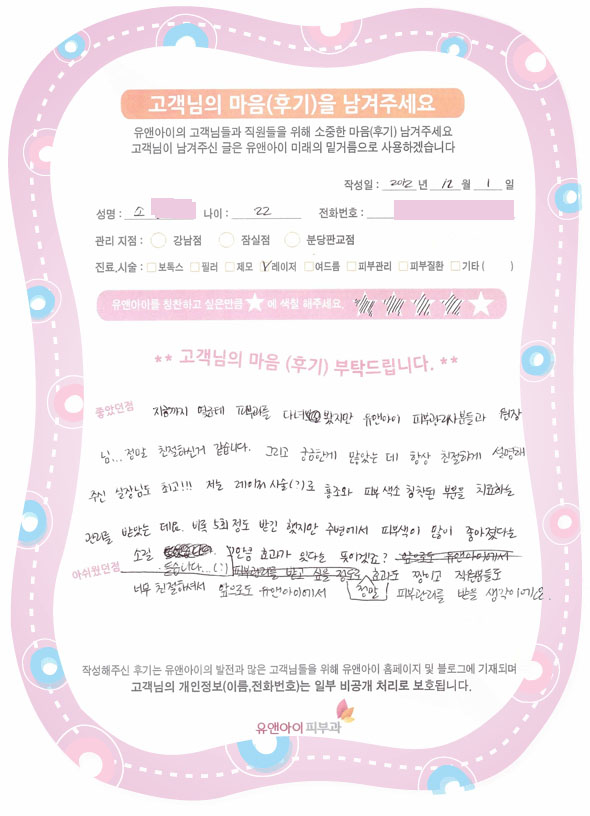 고객님의 마음(후기)을 남겨주세요
유앤아이의 고객님들과 직원들을 위해 소중한 마음(후기) 남겨주세요
고객님이 남겨주신 글은 유앤아이 미래의 밑거름으로 사용하겠습니다
작성일 : 2012 년 12 월 1 일
성명 : 소 나이 : 22 전화번호 :
관리 지점 : 강남점 잠실점 분당판교점
진료,시술 : 보톡스 필러 제모 V레이저 여드름 피부관리 피부질환 기타 ( )
유앤아이를 칭찬하고 싶은만큼 ★ 에 색칠 해주세요
** 고객님의 마음 (후기) 부탁드립니다. **
좋았던점 지금까지 여러군데 피부과를 다녀 봤지만 유앤아이 피부관리사분들과 원장
님... 정말 친절하신거 같습니다. 그리고 궁금한게 많았는 데 항상 친절하게 설명해
주신 실장님도 최고!!! 저는 레이저 시술(?)로 홍조와 피부 색소 침착된 부분을 치료하는
관리를 받았는 데요. 비록 5회 정도 받긴 했지만 주변에서 피부색이 많이 좋아졌다는
소릴 그만큼 효과가 있다는 뜻이겠죠? 앞으로도 유앤아이에서
아쉬웠던점 듣습니다...(:) 피부관리를 받고 싶을 정도로 효과도 짱이고 직원분들도
너무 친절하셔서 앞으로도 유앤아이에서 정말! 피부관리를 받을 생각이에요.
작성해주신 후기는 유앤아이의 발전과 많은 고객님들을 위해 유앤아이 홈페이지 및 블로그에 기재되며
고객님의 개인정보(이름,전화번호)는 일부 비공개 처리로 보호됩니다.
유앤아이피부과